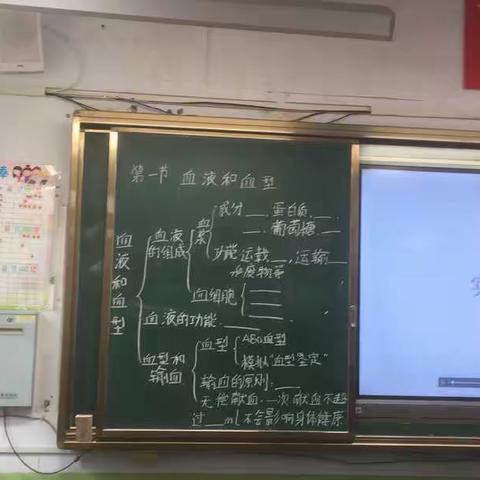 第一节 血液和血型
血液和血型
血液的组成
血浆
成分 ___ 蛋白质、___
___、葡萄糖、___
功能 运载___,运输___
和废物等
血细胞
血液的功能:___
血型和输血
血型
ABO血型
模拟"血型鉴定"
输血的原则:___
无偿献血:一次献血不超
过___ml 不会影响身体健康